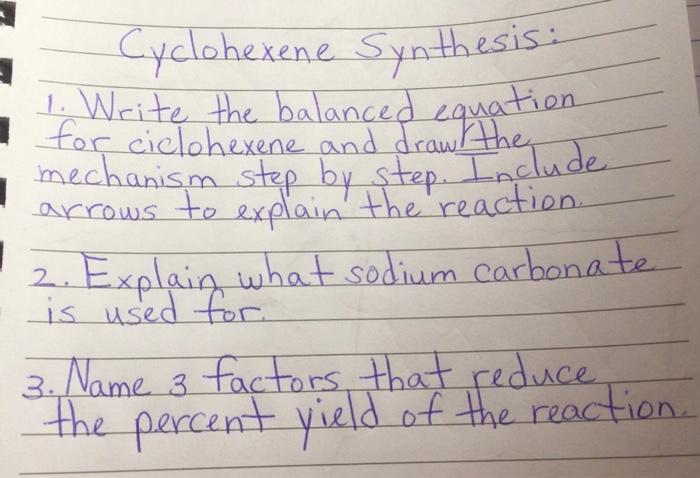 Cyclohexene Synthesis:
1. Write the balanced equation
for ciclohexene and draw the
mechanism step by step. Include
arrows to explain the reaction.
2. Explain what sodium carbonate
is used for.
3. Name 3 factors that reduce
the percent yield of the reaction.